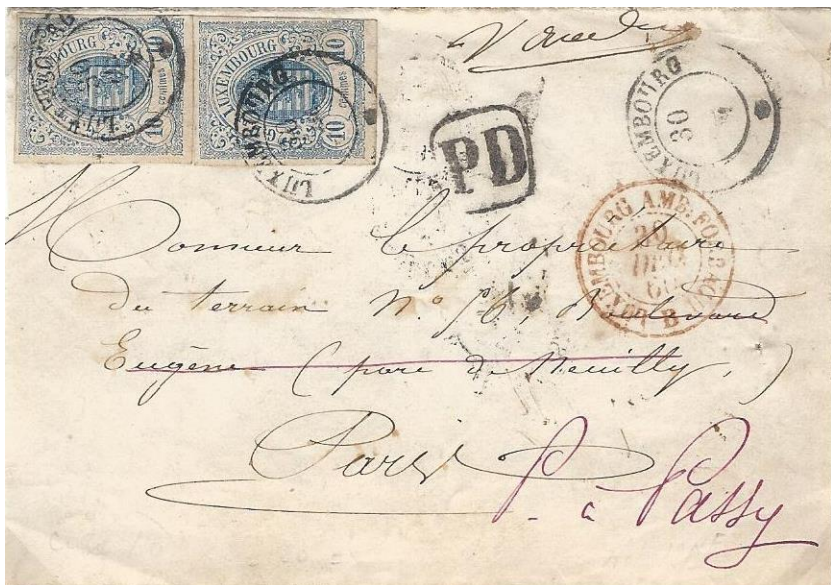 LUXEMBOURG
10
10
centimes
LUXEMBOURG
10
10
centimes
LUXEMBOURG
LUXEMBOURG
PD
LUXEMBOURG
30
LUXEMBOURG AMB. B
DEC
Monsieur le propriétaire
du terrain N° 56, Boulevard
Eugène (parc de Neuilly,)
Paris
P. à Passy